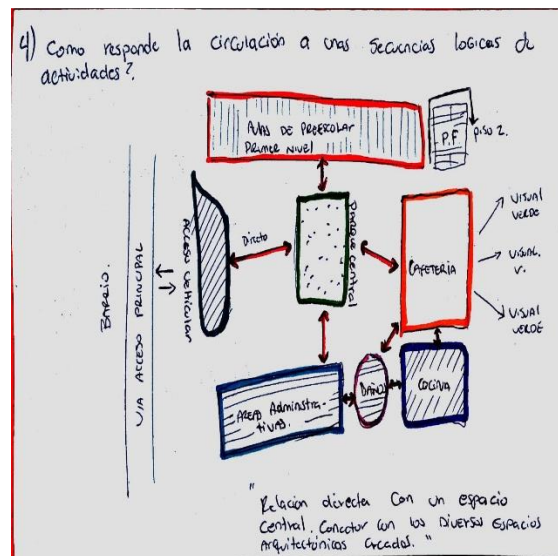 4) Como responde la circulación a unas secuencias logicas de
actividades?.
AULAS DE PREESCOLAR
PRIMER NIVEL
P.F
PISO 2.
BARRIO.
VIA ACCESO PRINCIPAL
ACCESO VEHICULAR
Directo
Parque central
CAFETERIA
VISUAL
VERDE
VISUAL.
V.
VISUAL
VERDE
AREAS Administra-
tivas.
BAÑOS
COCINA
"Relación directa con un espacio
central. Conector con los Diversos Espacios
Arquitectónicos creados."